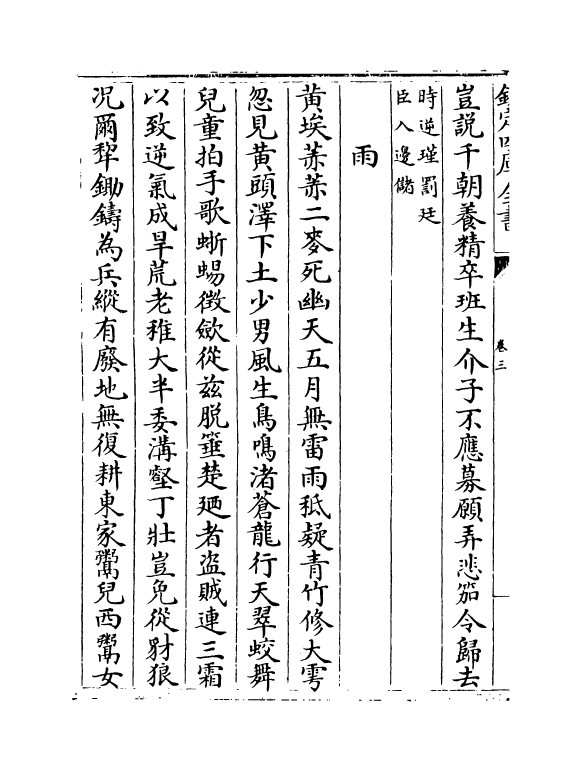 欽定四庫全書
卷三
豈説千朝養精卒班生介子不應募願弄悲笳令歸去
時逆瑾罰廷
臣入邊儲
雨
黄埃茶茶二麥死幽天五月無雷雨秪疑青竹修大雩
忽見黄頭澤下土少男風生鳥鳴渚蒼龍行天翠蛟舞
兒童拍手歌蜥蜴徴歛從兹脱箠楚廼者盗賊連三霜
以致逆氣成旱荒老稚大半委溝壑丁壯豈免從豺狼
况爾犂鋤鑄為兵縱有廢地無復耕東家鬻兒西鬻女